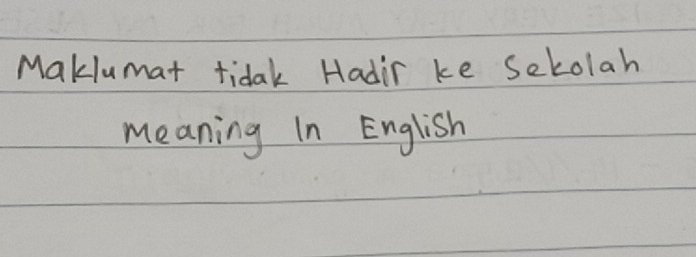 Maklumat tidak Hadir ke Sekolah
meaning In English